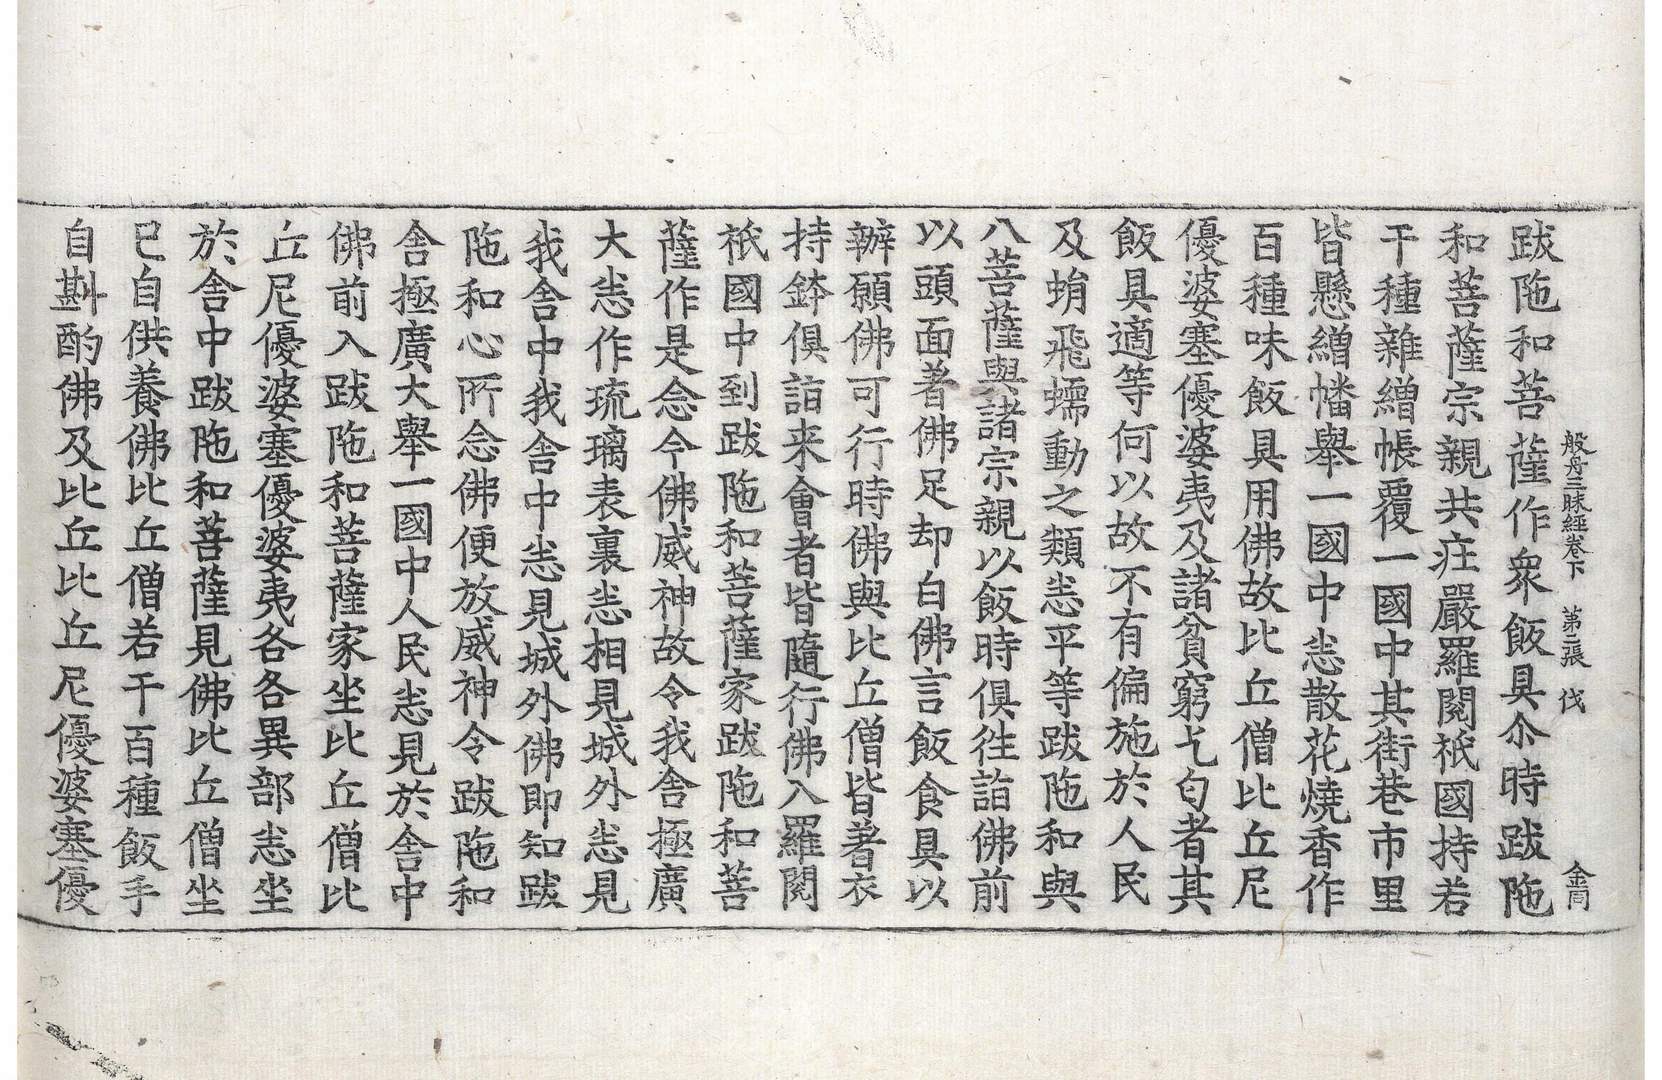 般舟三昧經卷下 第二張 伐 金同
跋陁和菩薩作衆飯具尒時跋陁
和菩薩宗親共庄嚴羅閱祇國持若
干種雜繒帳覆一國中其街巷市里
皆懸繒幡舉一國中悉散花燒香作
百種味飯具用佛故比丘僧比丘尼
優婆塞優婆夷及諸貧窮乞匃者其
飯具適等何以故不有偏施於人民
及蜎飛蠕動之類悉平等跋陁和與
八菩薩與諸宗親以飯時俱往詣佛前
以頭面著佛足却白佛言飯食具以
辦願佛可行時佛與比丘僧皆著衣
持鉢俱詣来會者皆隨行佛入羅閱
祇國中到跋陁和菩薩家跋陁和菩
薩作是念今佛威神故令我舍極廣
大悉作琉璃表裏悉相見城外悉見
我舍中我舍中悉見城外佛即知跋
陁和心所念佛便放威神令跋陁和
舍極廣大舉一國中人民悉見於舍中
佛前入跋陁和菩薩家坐比丘僧比
丘尼優婆塞優婆夷各各異部悉坐
於舍中跋陁和菩薩見佛比丘僧坐
已自供養佛比丘僧若干百種飯手
自斟酌佛及比丘比丘尼優婆塞優